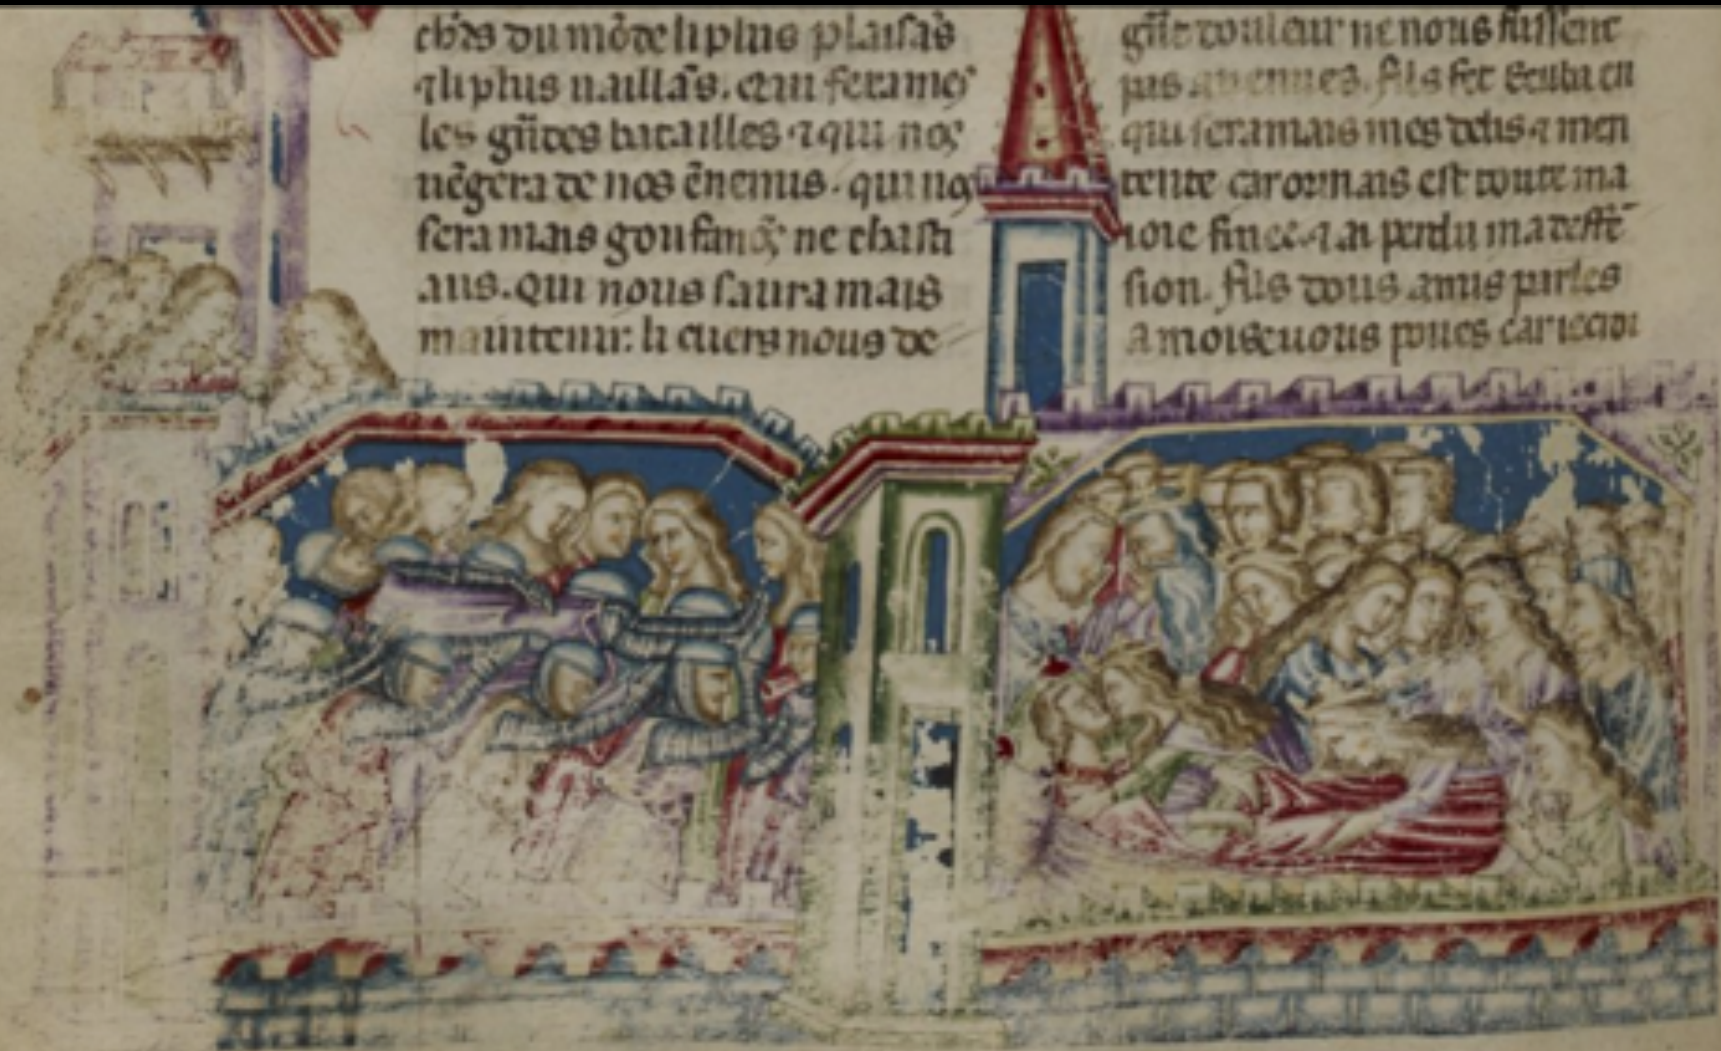 chĩs du mõde li plus plaisãs
⁊ li plus uaillãs. Qui fera mes
les grãdes batailles ⁊ qui nos
uẽgera de nos ẽnemis. qui nos
sera mais ne chasti
aus. Qui nous saura mais
maintenir: li cuers nous de
ne nous fussent
pas auenues. fils fet Ecuba en
qui sera mais mes delis ⁊ men
tente car ormais est toute ma
ioie finee. ⁊ ai perdu ma deffẽ
sion. fils dous amis parles
A moi se uous poues car ie croi